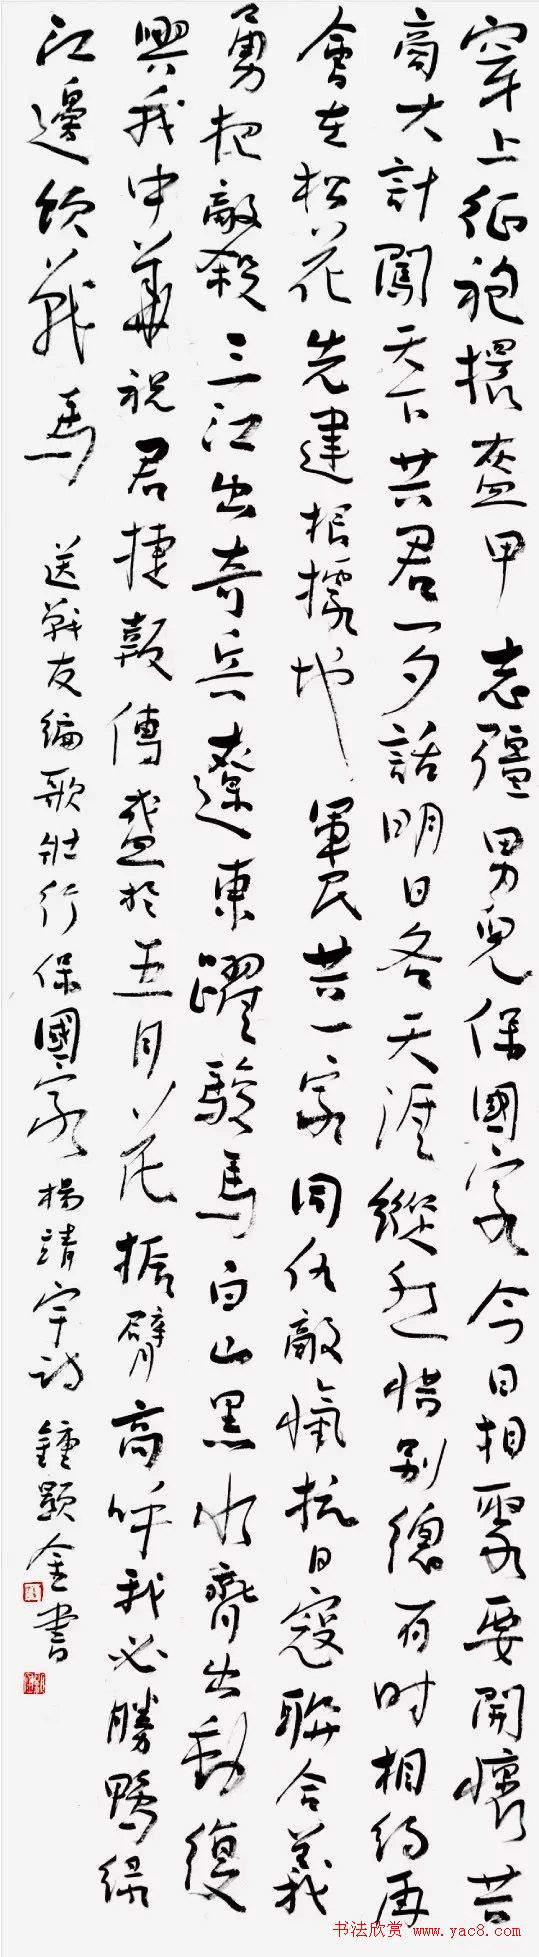 穿上征袍擐盔甲志疆男兒保國家今日相聚要開懷共
商大計闖天下共君一夕話明日各天涯縱然惜別總有時相約再
會在松花先建根據地軍民共一家同仇敵愾抗日寇聯合義
勇把敵殺三江出奇兵遼東躍駿馬白山黑水齊出動復
興我中華祝君捷報傳盛於五月花振臂高呼我必勝鴨綠
江邊飲戰馬
送戰友編歌壯行保國家楊靖宇詩鐘顯金書
书法欣赏 www.yac8.com